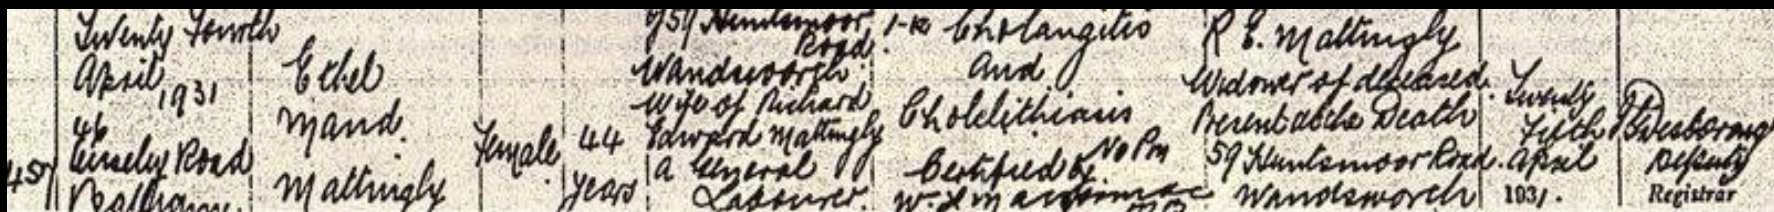 457
Twenty Fourth
April
1931
46
Road
Ethel
Maud.
Mattingly
Female
44
years
of 59 Huntsmoor
Road.
Wandsworth.
Wife of Richard
Edward Mattingly
a General
Labourer.
Cholangitis
and
Cholelithiasis
No Pm
Certified by
R E. Mattingly
Widower of deceased.
Present at the Death
59 Huntsmoor Road.
Wandsworth
Twenty
Fifth
April
1931.
Deputy
Registrar